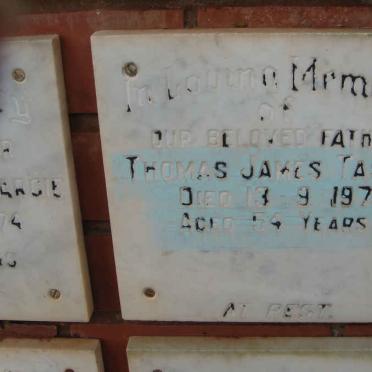 In Loving Mem
of
OUR BELOVED FATH
THOMAS JAMES TA
DIED 13 . 9 . 197
AGED 54 YEARS
AT REST.
74